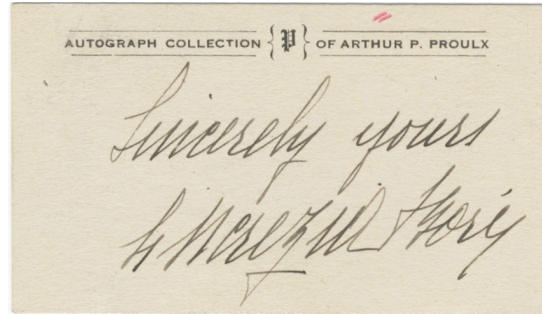 AUTOGRAPH COLLECTION {P} OF ARTHUR P. PROULX
Sincerely yours
Lucrezia Bori